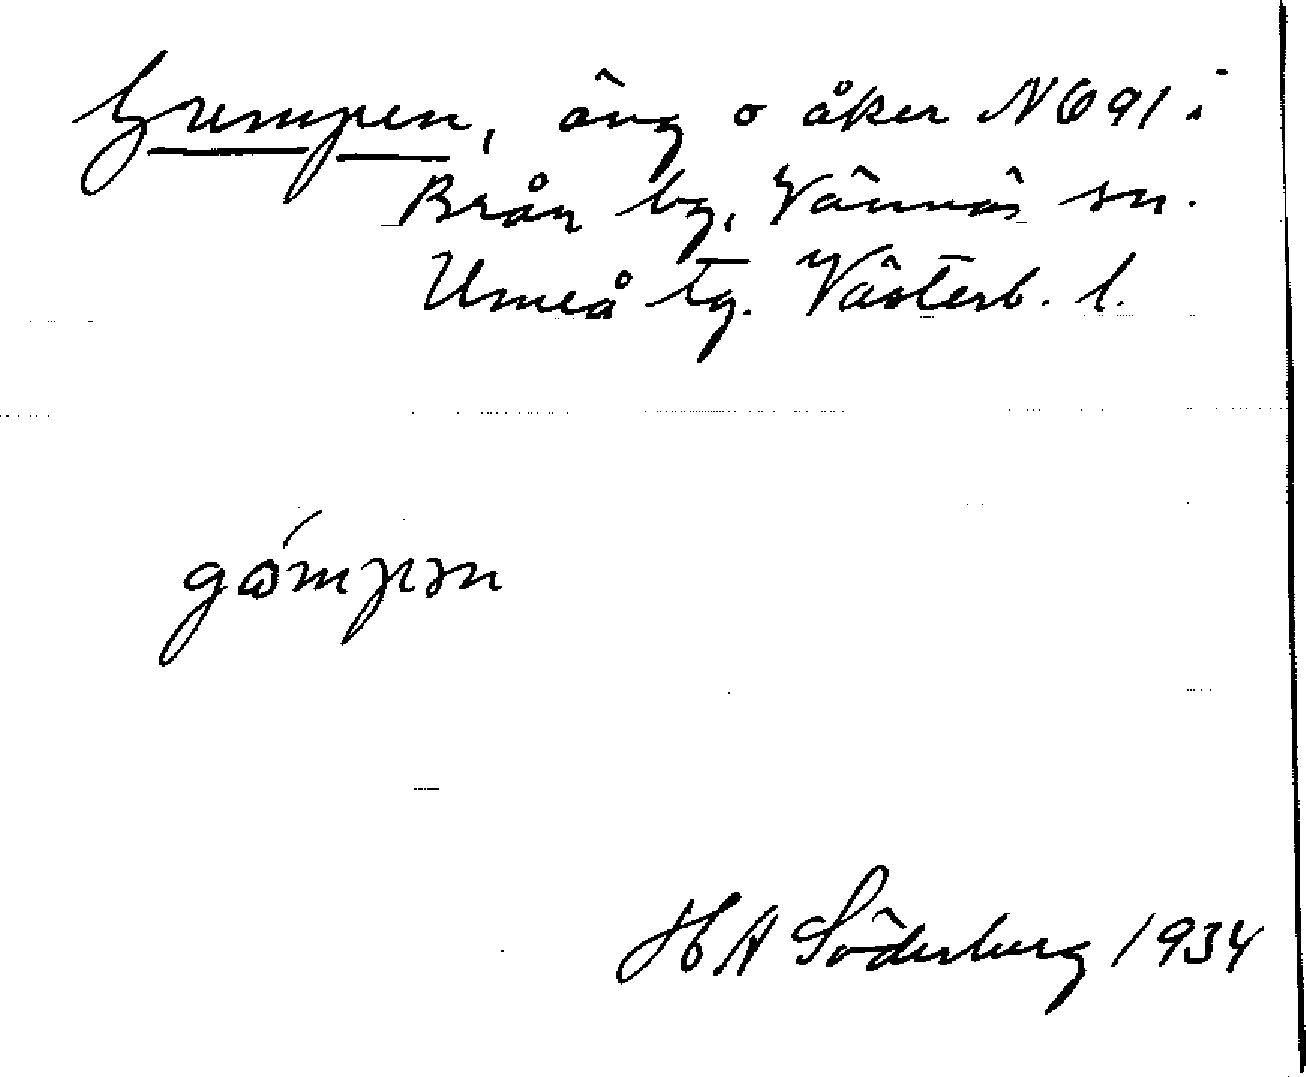 Grempen, äng o åker N 691 i
Brån by, Vännäs sn.
Umeå tg. Västerb. l.
H A Söderberg 1934